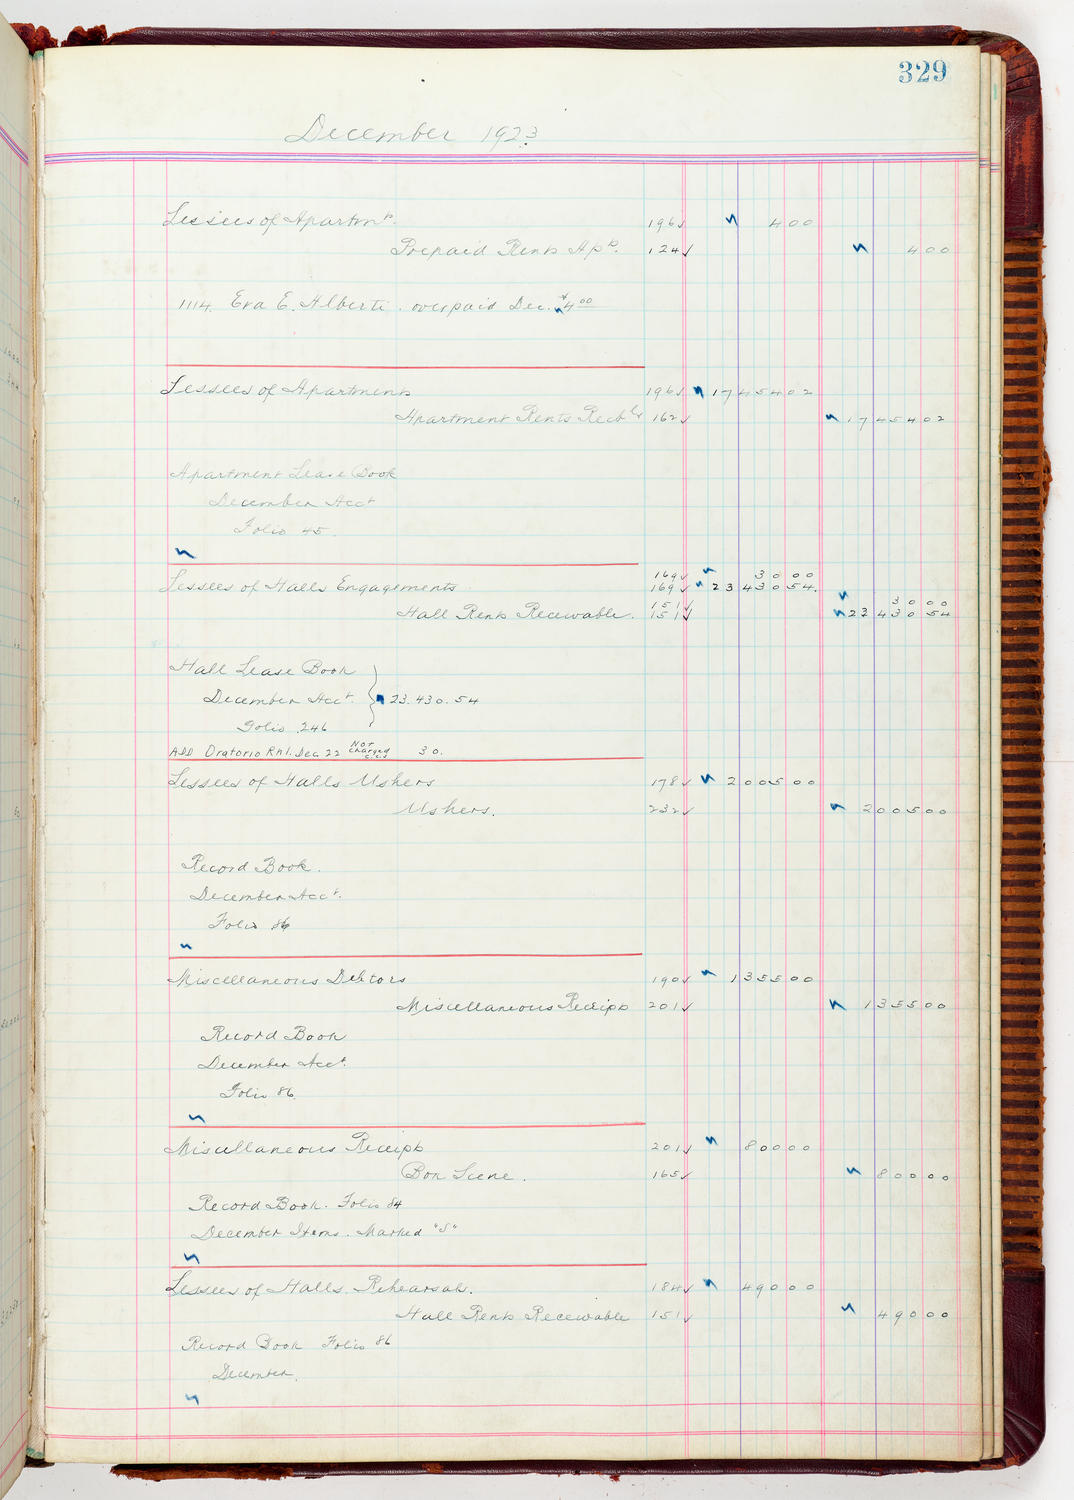 329
December 1923
Lessees of Apartmts. 196 ✓ 400
Prepaid Rents Apts. 124 ✓ 400
1114. Eva E. Alberti. overpaid Dec. $4 00
Lessees of Apartments 196 ✓ 1745402
Apartment Rents Recble 162 ✓ 1745402
Apartment Lease Book
December Acct
Folio 45.
169 ✓ 3000
Lessees of Halls Engagements 169 ✓ 2343054.
151 ✓ 3000
Hall Rents Receivable. 151 ✓ 2343054
Hall Lease Book
December Acct. } 23.430.54
Folio 246
Add Oratorio Rhl. Dec 22 Not Charged 30.
Lessees of Halls Ushers 178 ✓ 200500
Ushers. 232 ✓ 200500
Record Book.
December Acct.
Folio 86
Miscellaneous Debtors 190 ✓ 135500
Miscellaneous Receipts 201 ✓ 135500
Record Book
December Acct.
Folio 86.
Miscellaneous Receipts 201 ✓ 80000
Box Scene. 165 ✓ 80000
Record Book. Folio 84
December Items. Marked "S"
Lessees of Halls. Rehearsals. 184 ✓ 49000
Hall Rents Receivable 151 ✓ 49000
Record Book Folio 86
December.